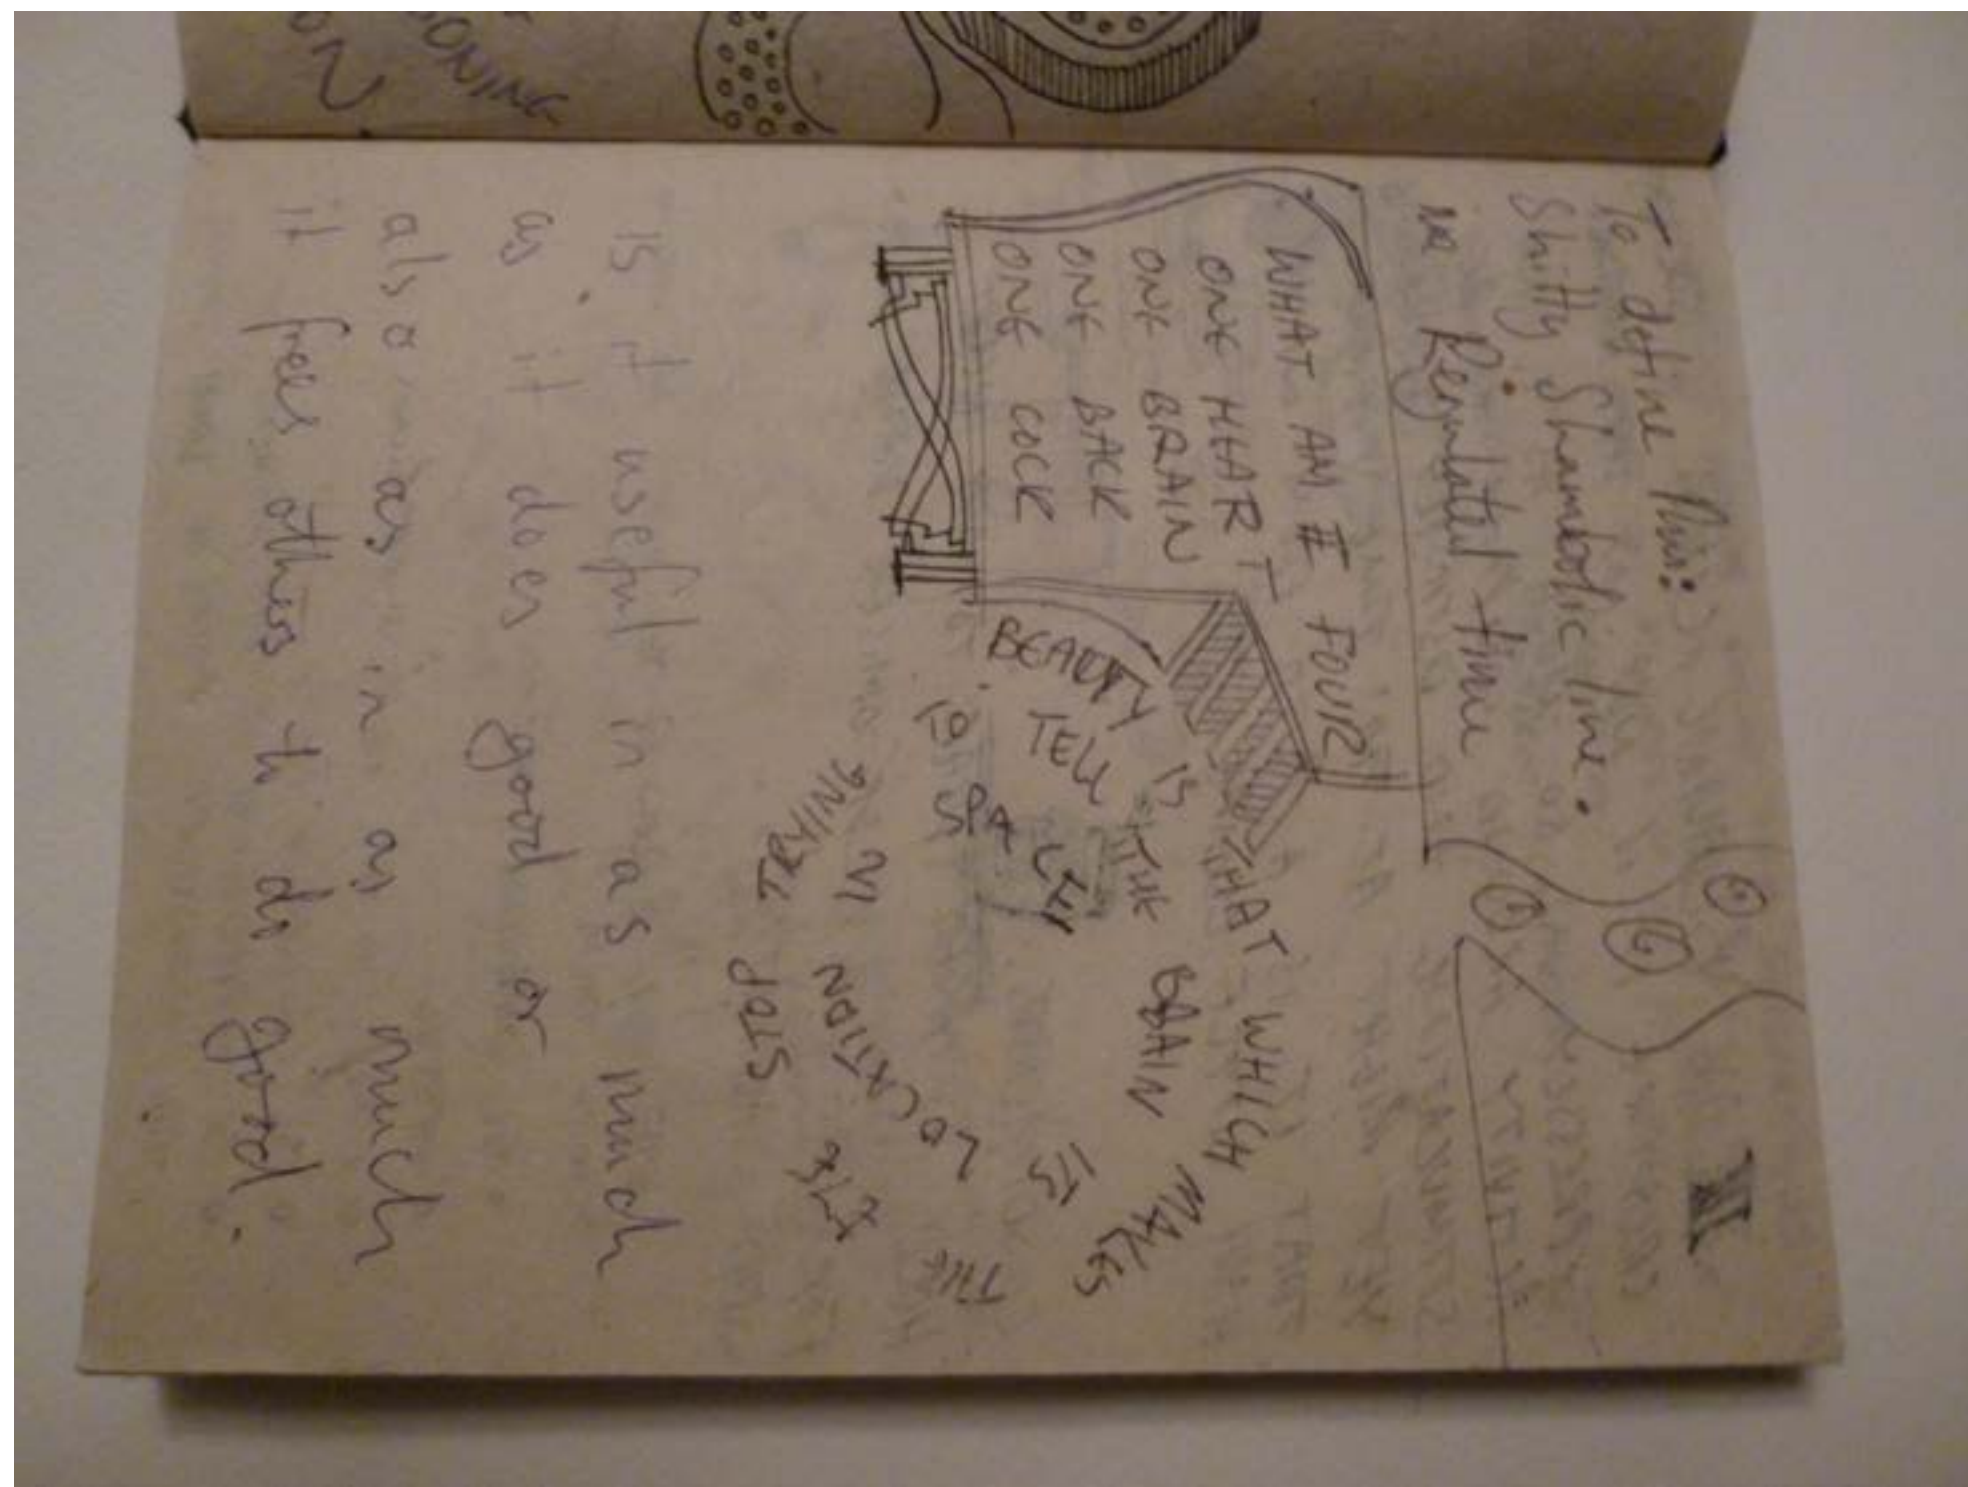 To define this:
Shitty Shambolic line.
in Regulated time
II
WHAT AM I FOUR
ONE HEART
ONE BRAIN
ONE BACK
ONE COCK
BEAUTY IS THAT WHICH MAKES THE EYES STOP TRYING
TO TELL THE BRAIN ITS LOCATION IN
SPACE
is it useful in as much
as it does good or
also as in as much
it frees others to do good.
ONING
ON